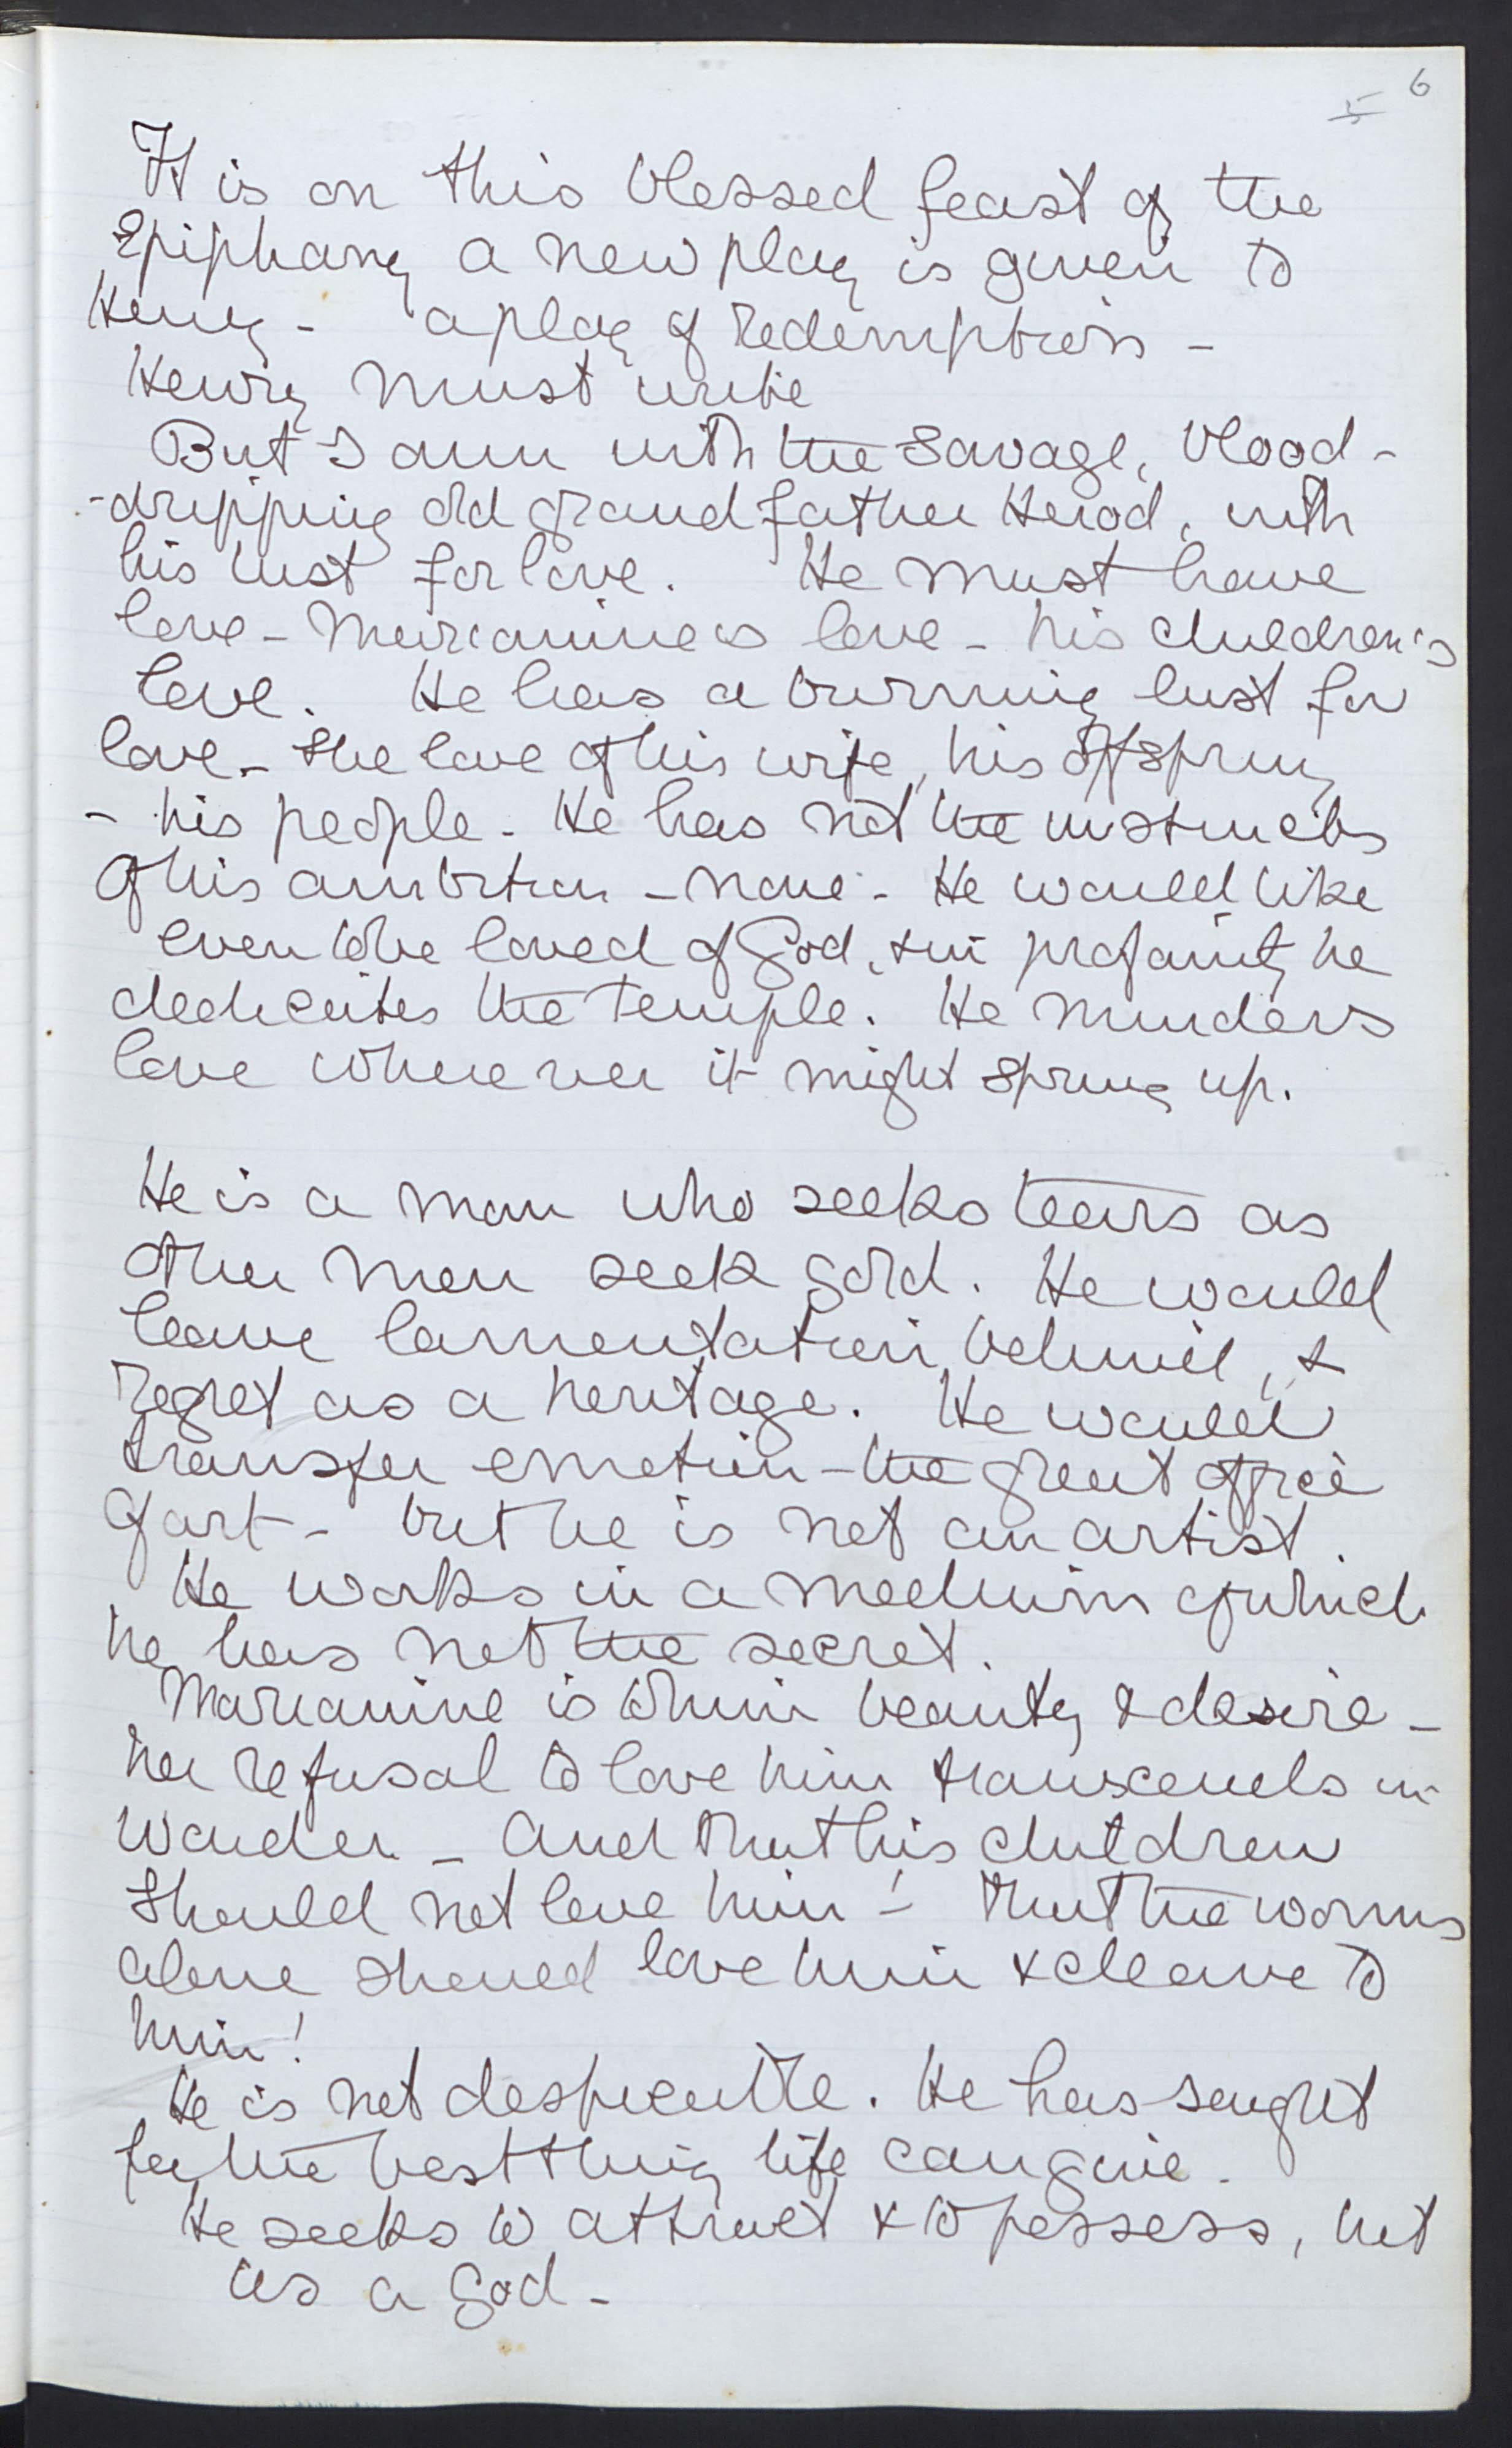 5 6
It is on this blessed feast of the
Epiphany a new play is given to
Henry - a play of redemption -
Henry must write
But I am with the savage, blood-
-dripping old grandfather Herod, with
his lust for love. He must have
love - Mariamine's love - his children's
love. He has a burning lust for
love - the love of his wife, his offspring
- his people. He has not the instincts
of his ambition - none - He would like
even to be loved of God, & in profanity he
dedicates the temple. He murders
love wherever it might spring up.
He is a man who seeks tears as
other men seek gold. He would
leave lamentation behind, &
regret as a heritage. He would
transfer emotion - the great office
of art - but he is not an artist.
He works in a medium of which
he has not the secret.
Mariamine is to him beauty & desire -
her refusal to love him transcends in
wonder - and that his children
should not love him! That the worms
alone should love him & cleave to
him!
He is not despicable. He has sought
for the best thing life can give.
He seeks to attract & to possess, but
as a god -